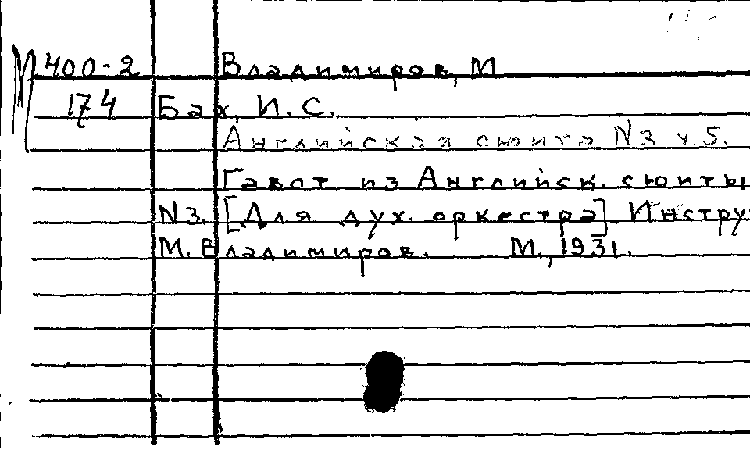 М 400-2 Владимиров, М
174 Бах, И. С.
Английская сюита N3 ч 5.
Гавот из Английск. сюиты
N3. [Для дух. оркестра] Инстру
М. Владимиров. М., 1931.